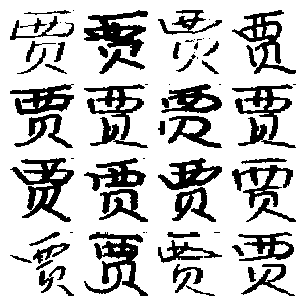 贾贾贾贾
贾贾贾贾
贾贾贾贾
贾贾贾贾